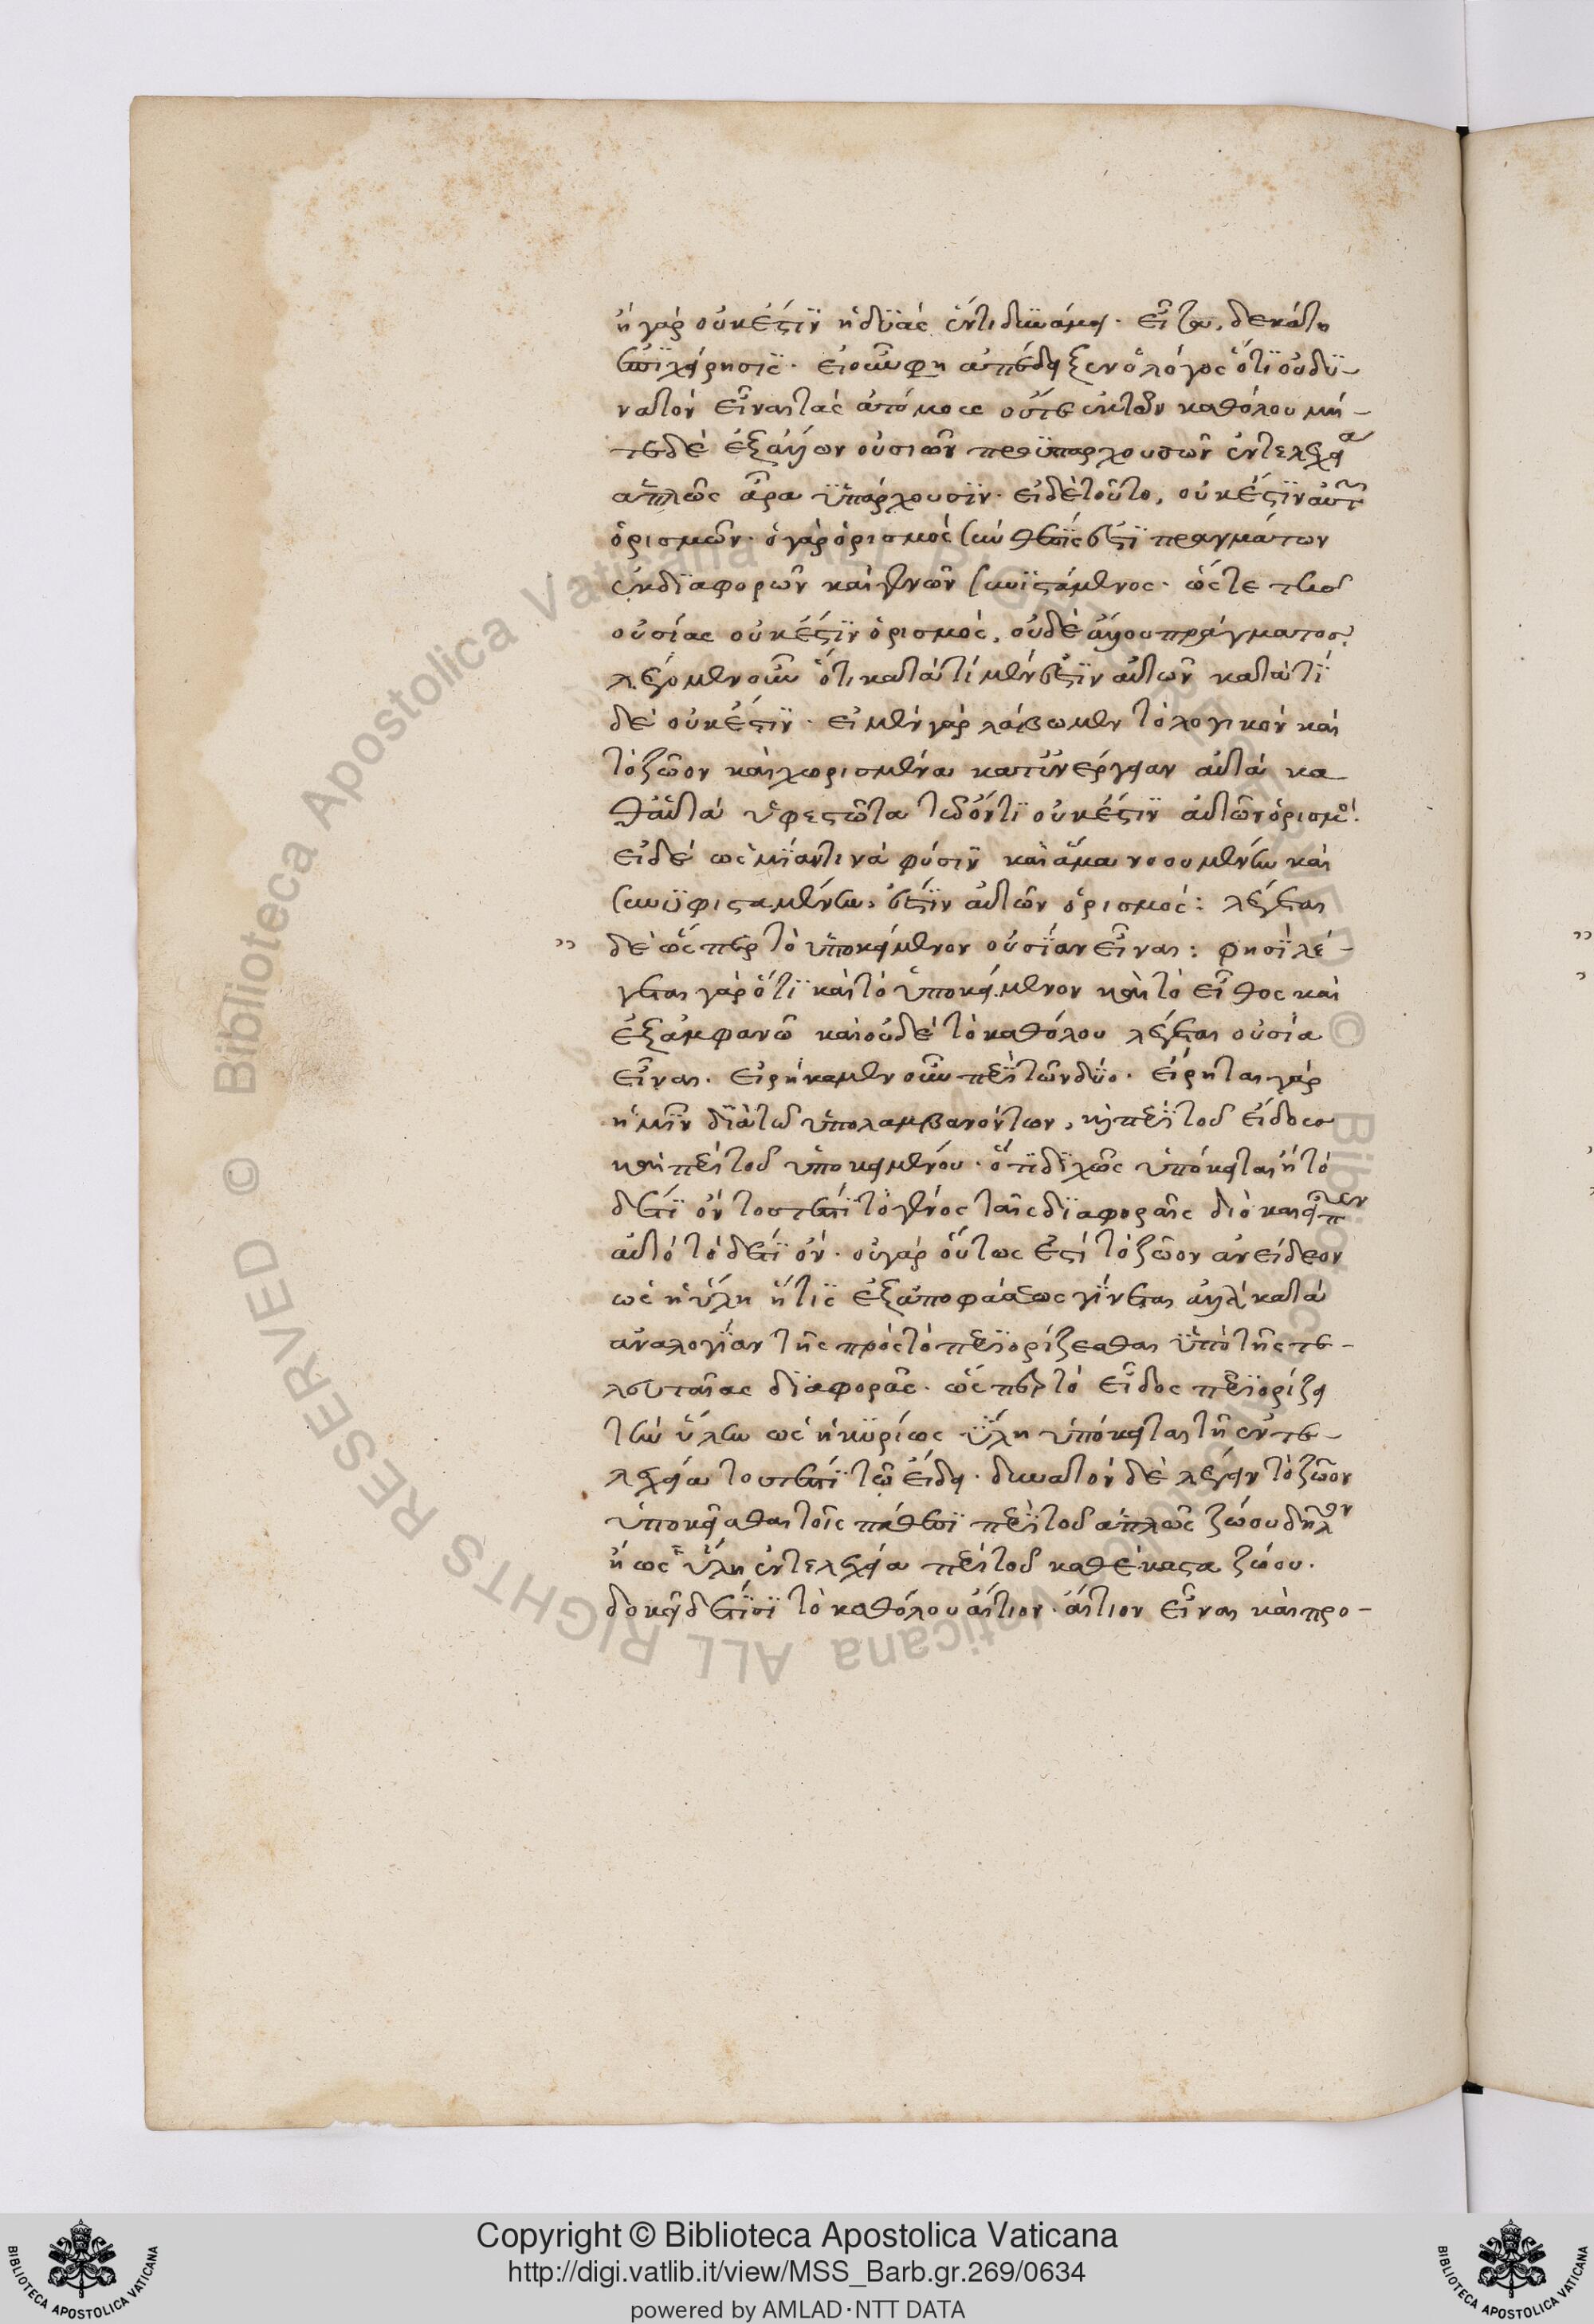 ἢ γὰρ οὐκ ἔστιν ἡ δυὰς ἓν τι δυνάμει. εἶτα, δεκάτη
ἐπιχείρησις. εἰ οὖν φη ἀπέδειξεν ὁ λόγος ὅτι οὐ δυ-
νατὸν εἶναι τὰς ἀτόμους οὔτε ἐκ τῶν καθόλου μή-
τε δὲ ἐξ ἄλλων οὐσιῶν προϋπαρχουσῶν ἐντελεχείᾳ
ἁπλῶς ἄρα ὑπάρχουσιν. εἰ δὲ τοῦτο, οὐκ ἔστιν αὐτῶν
ὁρισμῶν. ὁ γὰρ ὁρισμὸς συνθέσις ἐστὶ πραγμάτων
ἐκ διαφορῶν καὶ γενῶν συνιστάμενος. ὥστε τῆς
οὐσίας οὐκ ἔστιν ὁρισμός, οὐδὲ ἄλλου πράγματος.
λέγομεν οὖν ὅτι κατὰ τὶ μὲν ἐστὶν αὐτῶν κατὰ τὶ
δὲ οὐκ ἔστιν. εἰ μὲν γὰρ λάβωμεν τὸ λογικὸν καὶ
τὸ ζῶον καὶ χωρισμένα κατ' ἐνέργειαν αὐτὰ κα
θ' αὑτὰ ὑφεστῶτα τῷ ὄντι οὐκ ἔστιν αὐτῶν ὁρισμός.
εἰ δὲ ὡς μίαν τινὰ φύσιν καὶ ἅμα νοουμένην καὶ
συνυφισταμένην, ἐστὶν αὐτῶν ὁρισμός: λέγεται
" δὲ ὥσπερ τὸ ὑποκείμενον οὐσίαν εἶναι: φησὶ λέ-
γεται γὰρ ὅτι καὶ τὸ ὑποκείμενον καὶ τὸ εἶδος καὶ
ἐξ ἀμφοῖν καὶ οὐδὲ τὸ καθόλου λέγεται οὐσία
εἶναι. εἰρήκαμεν οὖν περὶ τῶν δύο. εἴρηται γὰρ
ἡμῖν διὰ τῶν ὑπολαμβανόντων, καὶ περὶ τοῦ εἴδους
καὶ περὶ τοῦ ὑποκειμένου. ὅτι διχῶς ὑπόκειται ἢ τὸ
δέ τι ὂν τουτέστι τὸ γένος ταῖς διαφοραῖς διὸ καὶ εἶπεν
αὐτὸ τόδε τι ὄν. οὐ γὰρ οὕτως ἐστὶ τὸ ζῶον ἀνείδεον
ὡς ἡ ὕλη ἥτις ἐξ ἀποφάσεως γίνεται ἀλλὰ κατὰ
ἀναλογίαν τῆς πρὸς τὸ περιορίζεσθαι ὑπὸ τῆς τε-
λευταίας διαφορᾶς. ὥσπερ τὸ εἶδος περιορίζει
τὴν ὕλην ὡς ἡ κυρίως ὕλη ὑπόκειται τῇ ἐντε-
λεχείᾳ τουτέστι τῷ εἴδει. δυνατὸν δὲ λέγειν τὸ ζῶον
ὑποκεῖσθαι τοῖς πάθεσι περὶ τοῦ ἁπλῶς ζώου δηλον
ἢ ὡς ἡ ὕλη ἐντελεχείᾳ περὶ τοῦ καθέκαστα ζώου.
δοκεῖ δέ τισι τὸ καθόλου αἴτιον. αἴτιον εἶναι καὶ προ-
© Biblioteca Apostolica Vaticana ALL RIGHTS RESERVED
Copyright © Biblioteca Apostolica Vaticana
http://digi.vatlib.it/view/MSS_Barb.gr.269/0634
powered by AMLAD·NTT DATA
BIBLIOTECA APOSTOLICA VATICANA
BIBLIOTECA APOSTOLICA VATICANA